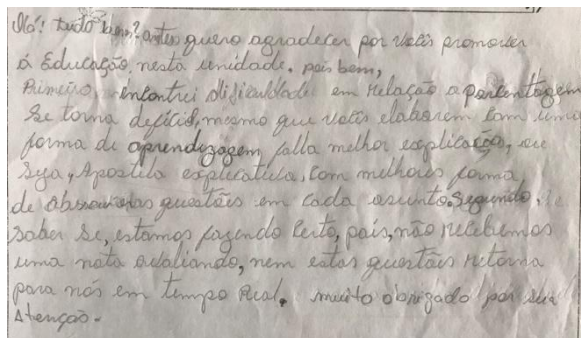 Olá! tudo bem? antes quero agradecer por vocês promover
á Educação, nesta unidade. pois bem,
Primeiro, encontrei dificuldade em relação a porcentagem
se torna defício, mesmo que vocês elaborem com uma
forma de aprendizagem, falta melhor explicação, ou
Seja, Apostila explicativa, com milhores forma
de questões em cada assunto. Segundo,
saber se, estamos fazendo certo, pois, não recebemos
uma nota avaliando, nem estas questões retorna
para nós em tempo real. muito obrigado por sua
Atenção.